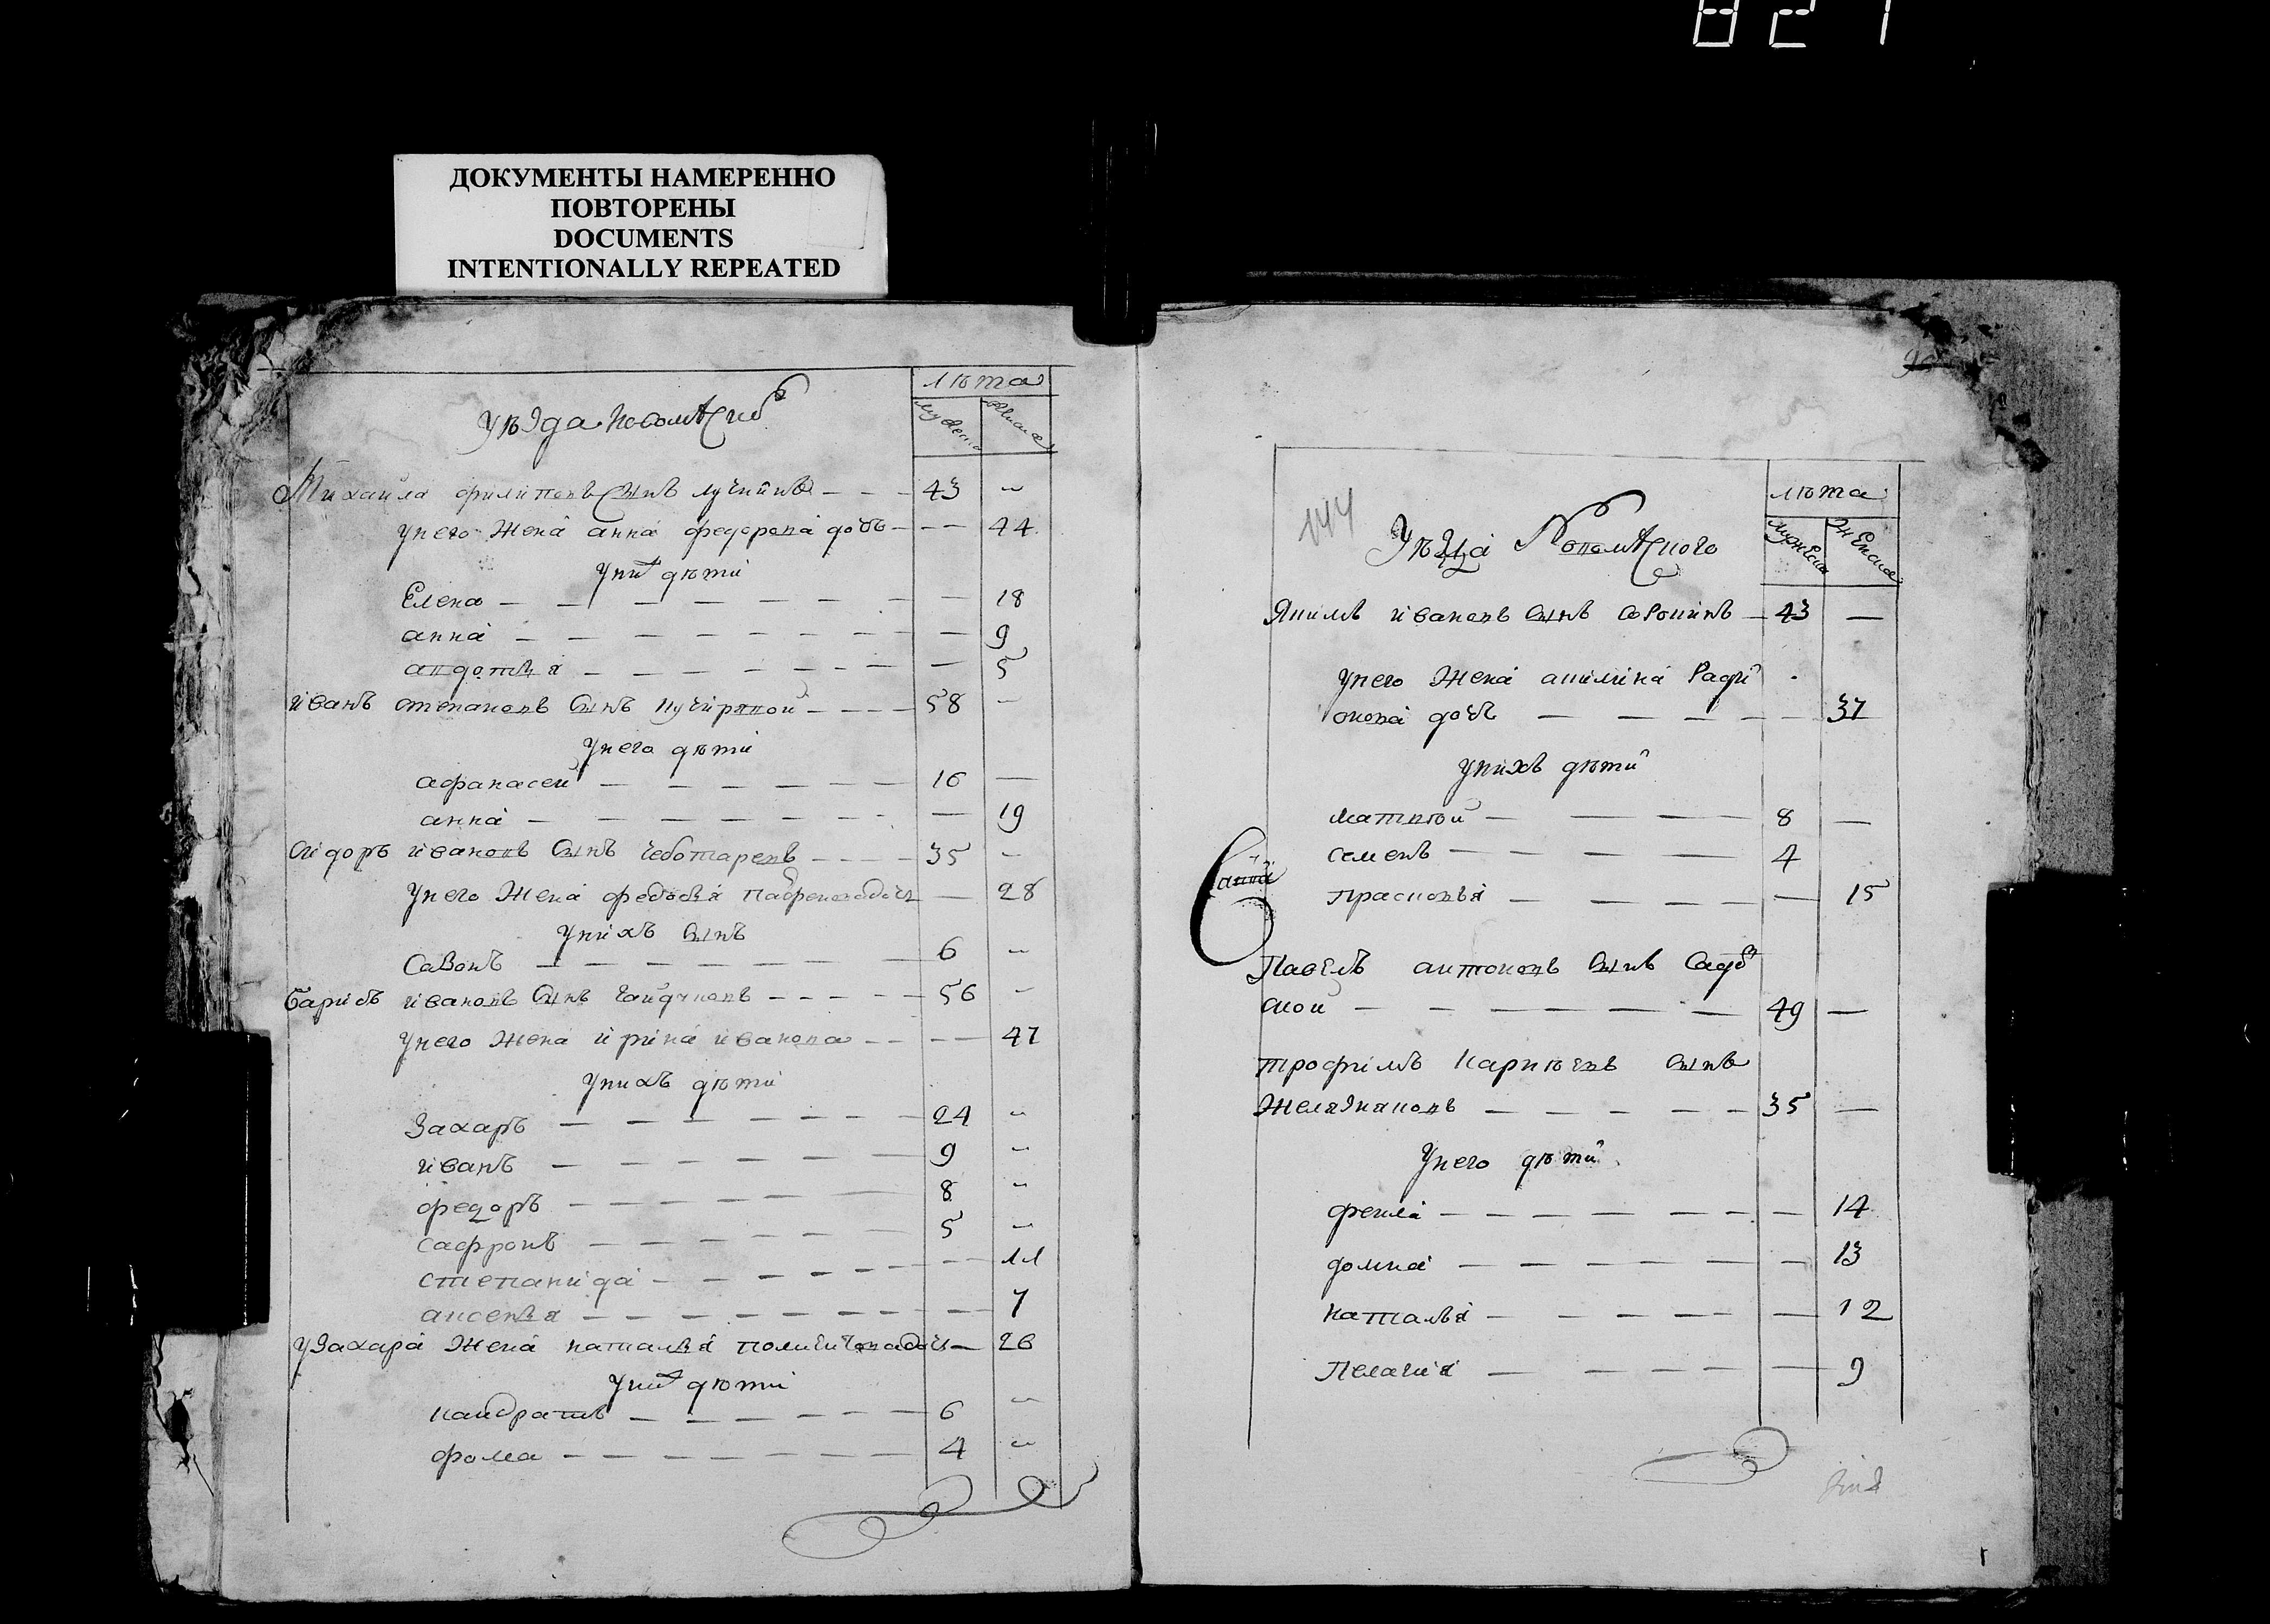 827
ДОКУМЕНТЫ НАМЕРЕННО
ПОВТОРЕНЫ
DOCUMENTS
INTENTIONALLY REPEATED
лѣта
уѣзда
Михаила филиповъ сынъ 43
унего жена анна федорова дочь 44
уних дѣти
Елена 18
анна 9
авдотья 5
иванъ степановъ сынъ 58
унего дѣти
афанасеи 16
анна 19
сидоръ ивановъ сынъ чеботаревъ 35
унего жена федосья 28
унихъ сынъ
савонъ 6
Барисъ ивановъ сынъ 56
унего жена ирина иванова 47
унихъ дѣти
Захаръ 24
иванъ 9
федоръ 8
сафронъ 5
степанида 11
аксенья 7
узахара жена наталья 26
уних дѣти
кандратъ 6
фома 4
лѣта
144
уѣзда
мужеска женска
Якимъ ивановъ сынъ сорокинъ 43
унего жена акилина Ради
онова дочь 37
унихъ дѣти
матвѣй 8
семенъ 4
прасковья 15
Павелъ антоновъ сынъ садов
скои 49
трофимъ карнѣевъ сынъ
Желязняковъ 35
унего дѣти
фекла 14
домна 13
наталья 12
Пелагия 9